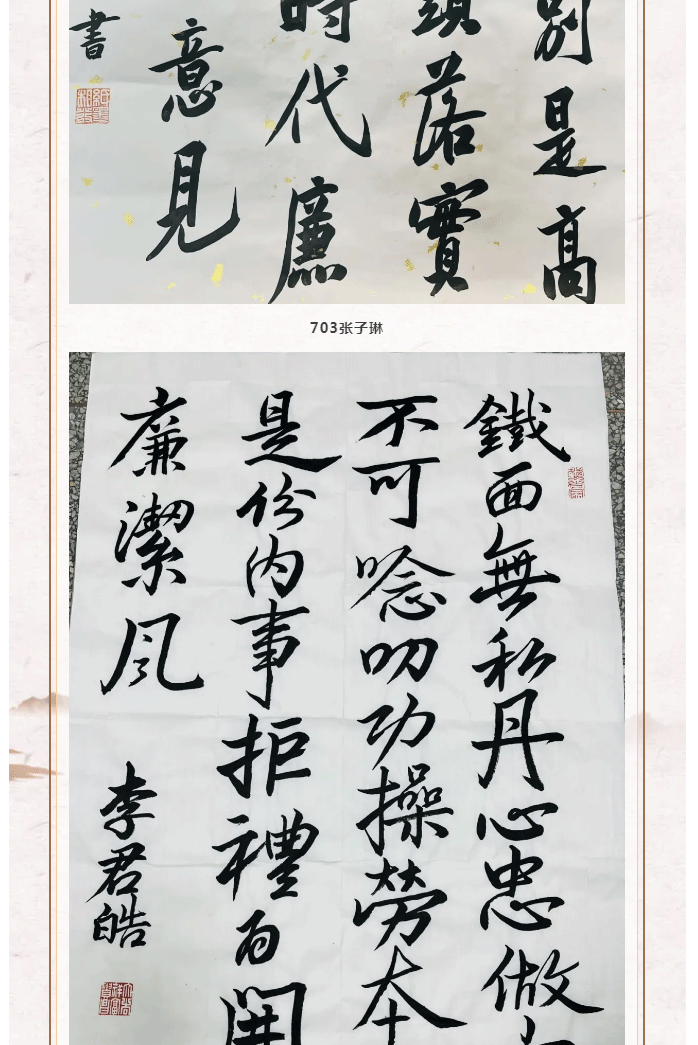 別是高
落實
時代廉
意見
書
703张子琳
鐵面無私丹心忠做
不可唸叨功操勞本
是份内事拒禮為開
廉潔風
李君皓